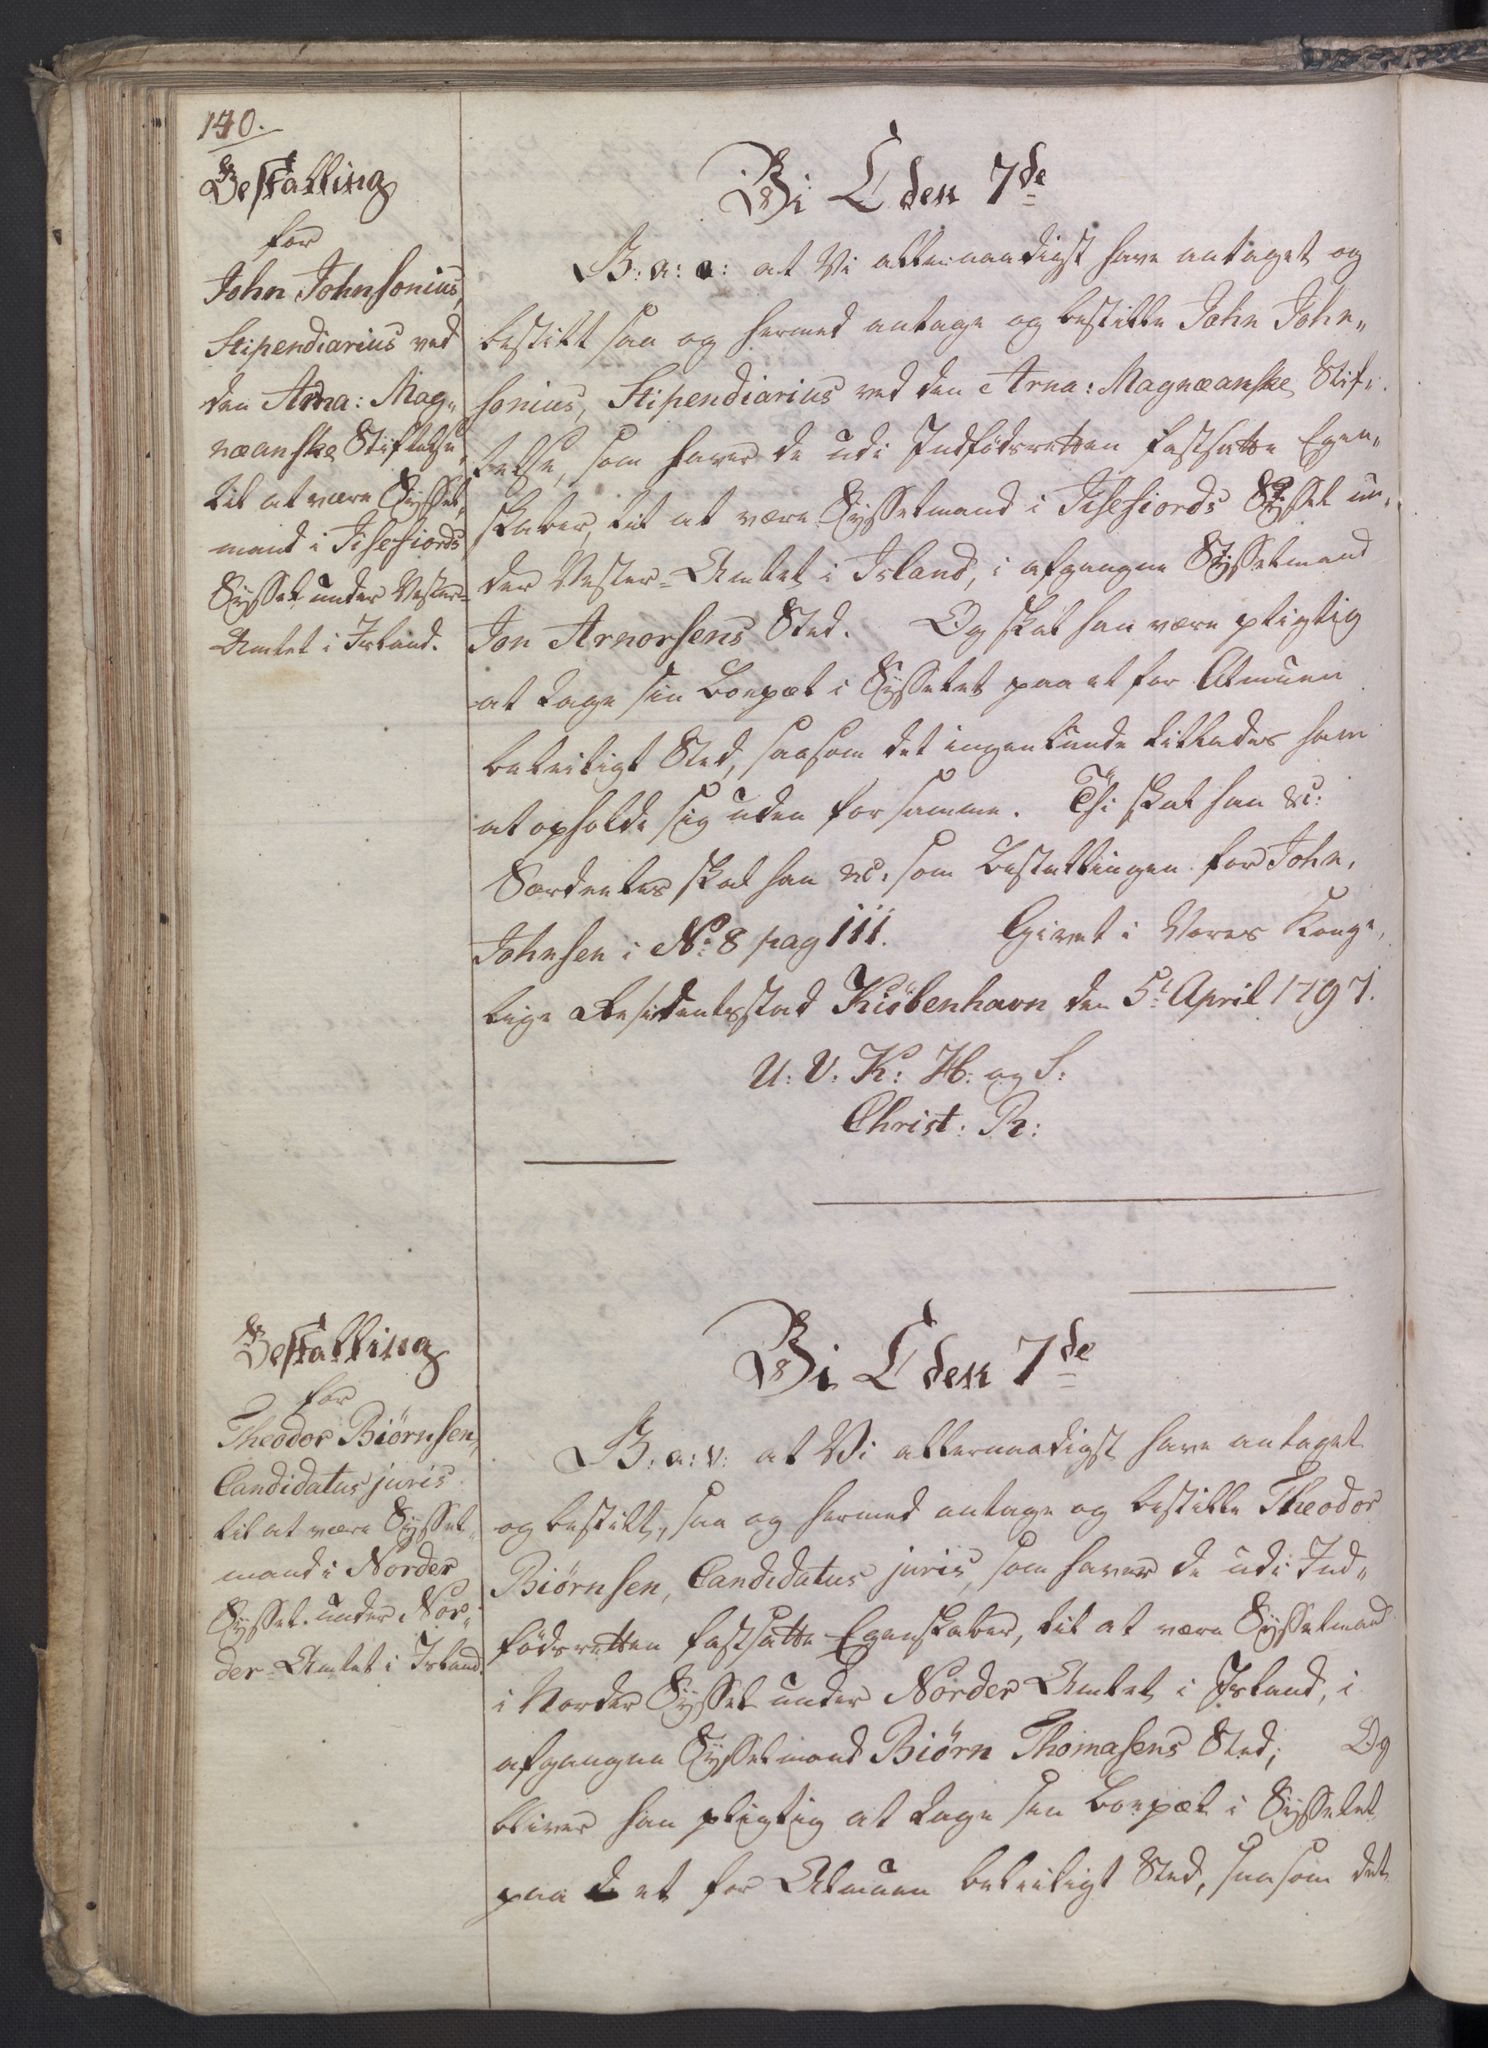 140.
Bestalling
for
John Johnsonius,
Stipendiarius ved
den Arna: Mag„
næanske Stiftelse,
til at være Syssel„
mand i Isefiords
Syssel under Vester-
Amtet i Island.
Vi C den 7de
B: a: v: at Vi allernaadigst have antaget og
bestilt saa og hermed antage og bestille John John„
sonius, Stipendiarius ved den Arna: Magnæanske Stif„
telse, som haver de udi Indfødsretten fastsatte Egen„
skaber, til at være Sysselmand i Isefiords Syssel un„
der Vester-Amtet i Island, i afgangne Sysselmand
Jon Arnorsens Sted. Og skal han være pligtig
at tage sin Boepæl i Sysselet paa et for Almuen
beleiligt Sted, saasom det ingenlunde tillades ham
at opholde sig uden for samme. Thi skal han &c:
Særdeeles skal han &c: som Bestallingen for John
Johnsen i No: 8 pag 111. Givet i Vores Konge„
lige Residentsstad Kiöbenhavn den 5t April 1797.
U: V: K: H: og S:
Christ: R:
Bestalling
for
Theodor Biörnsen,
Candidatus juris
til at være Syssel„
mand i Norder
Syssel under Nor„
der-Amtet i Island.
Vi C den 7de
B: a: v: at Vi allernaadigst have antaget
og bestilt, saa og hermed antage og bestille Theodor
Biörnsen, Candidatus juris, som haver de udi Ind„
fødsretten fastsatte Egenskaber, til at være Sysselmand
i Norder Syssel under Norder Amtet i Island, i
afgangne Sysselmand Biörn Thomasens Sted; Og
bliver han pligtig at tage sin Boepæl i Sysselet
paa et for Almuen beleiligt Sted, saasom det